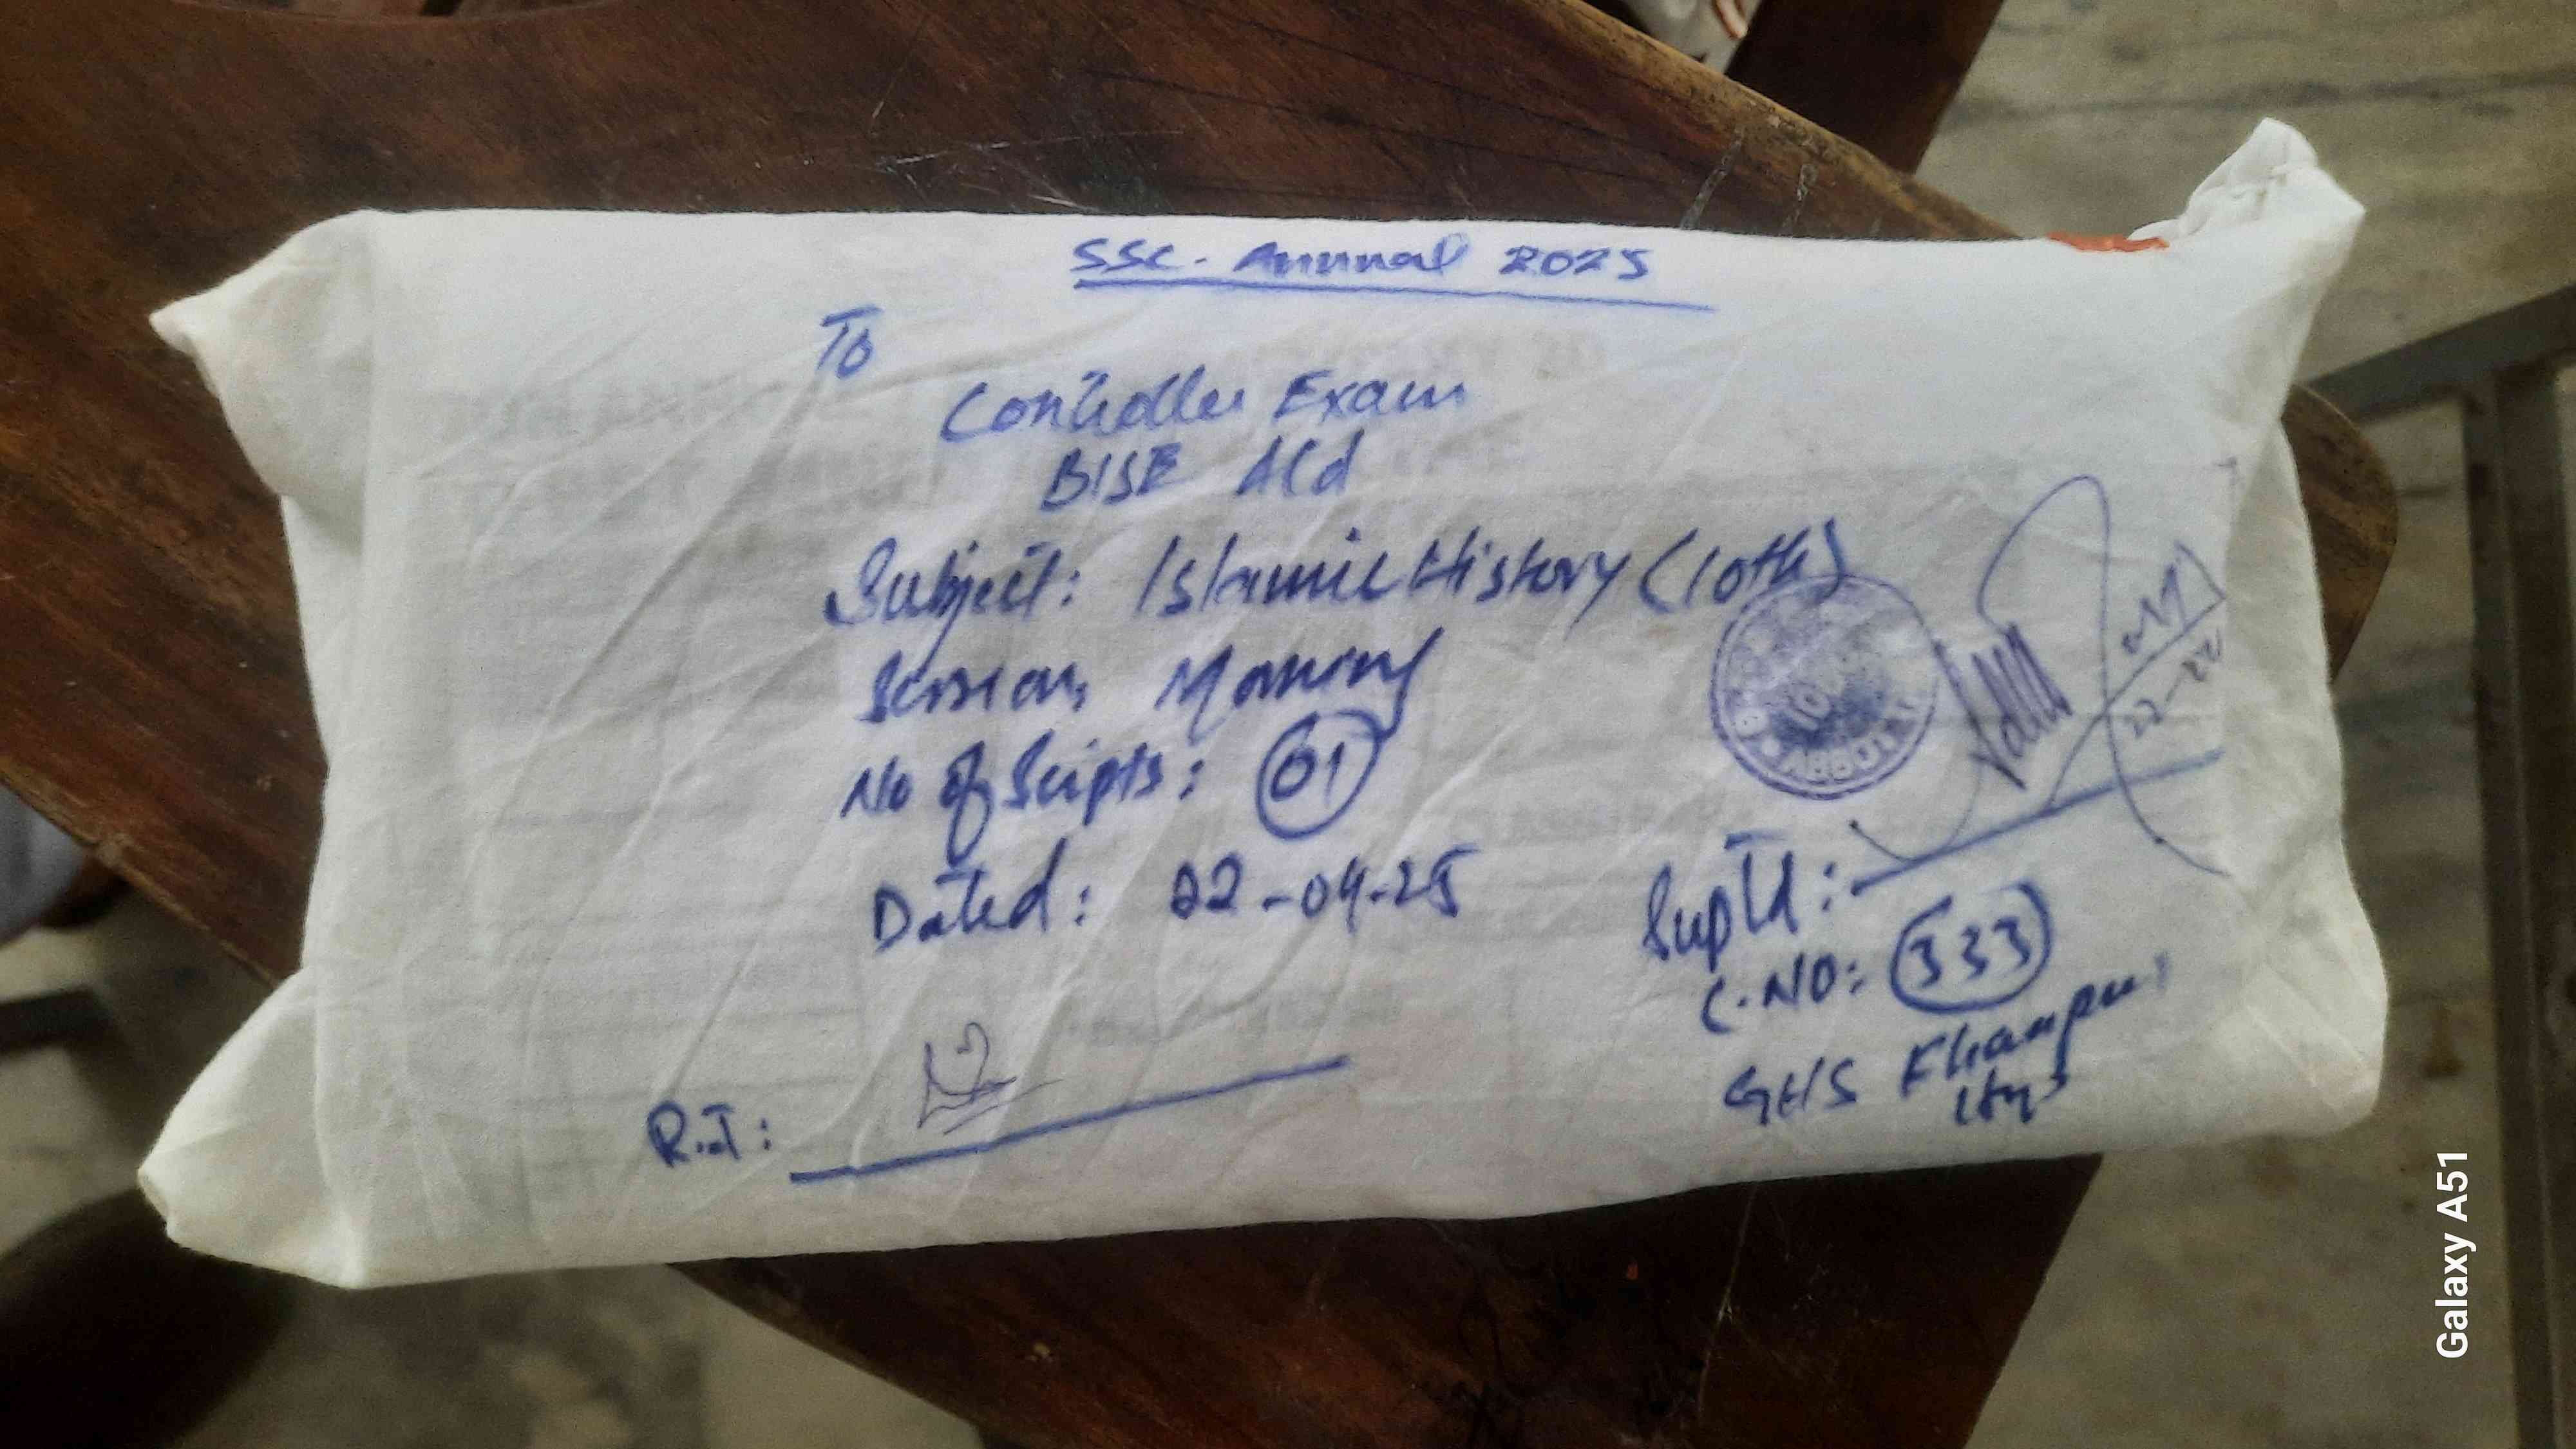 SSC. Annual 2025
To
Controller Exam
BISE Atd
Subject: Islamic History (10th)
Session, Morning
No of Scripts: 01
Dated: 22-04-25
Suptd:
C.NO: 333
GHS Khanpur
R.I:
ABBOTTABAD
Galaxy A51